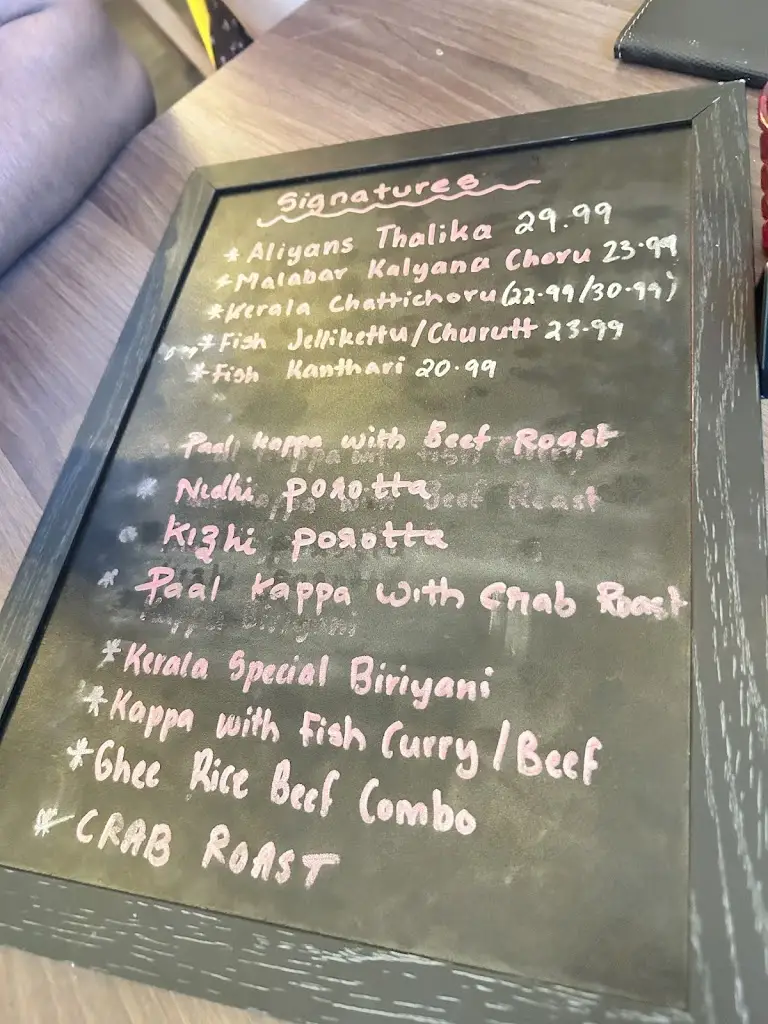 Signatures
*Aliyans Thalika 29.99
*Malabar Kalyana Choru 23.99
*Kerala Chattichoru (22.99/30.99)
*Fish Jellikettu/Churutt 23.99
*Fish Kanthari 20.99
Paal Kappa with Beef Roast
* Nidhi porotta
Kizhi porotta
* Paal Kappa with Crab Roast
*Kerala Special Biriyani
*Kappa with Fish Curry/Beef
*Ghee Rice Beef Combo
* CRAB ROAST